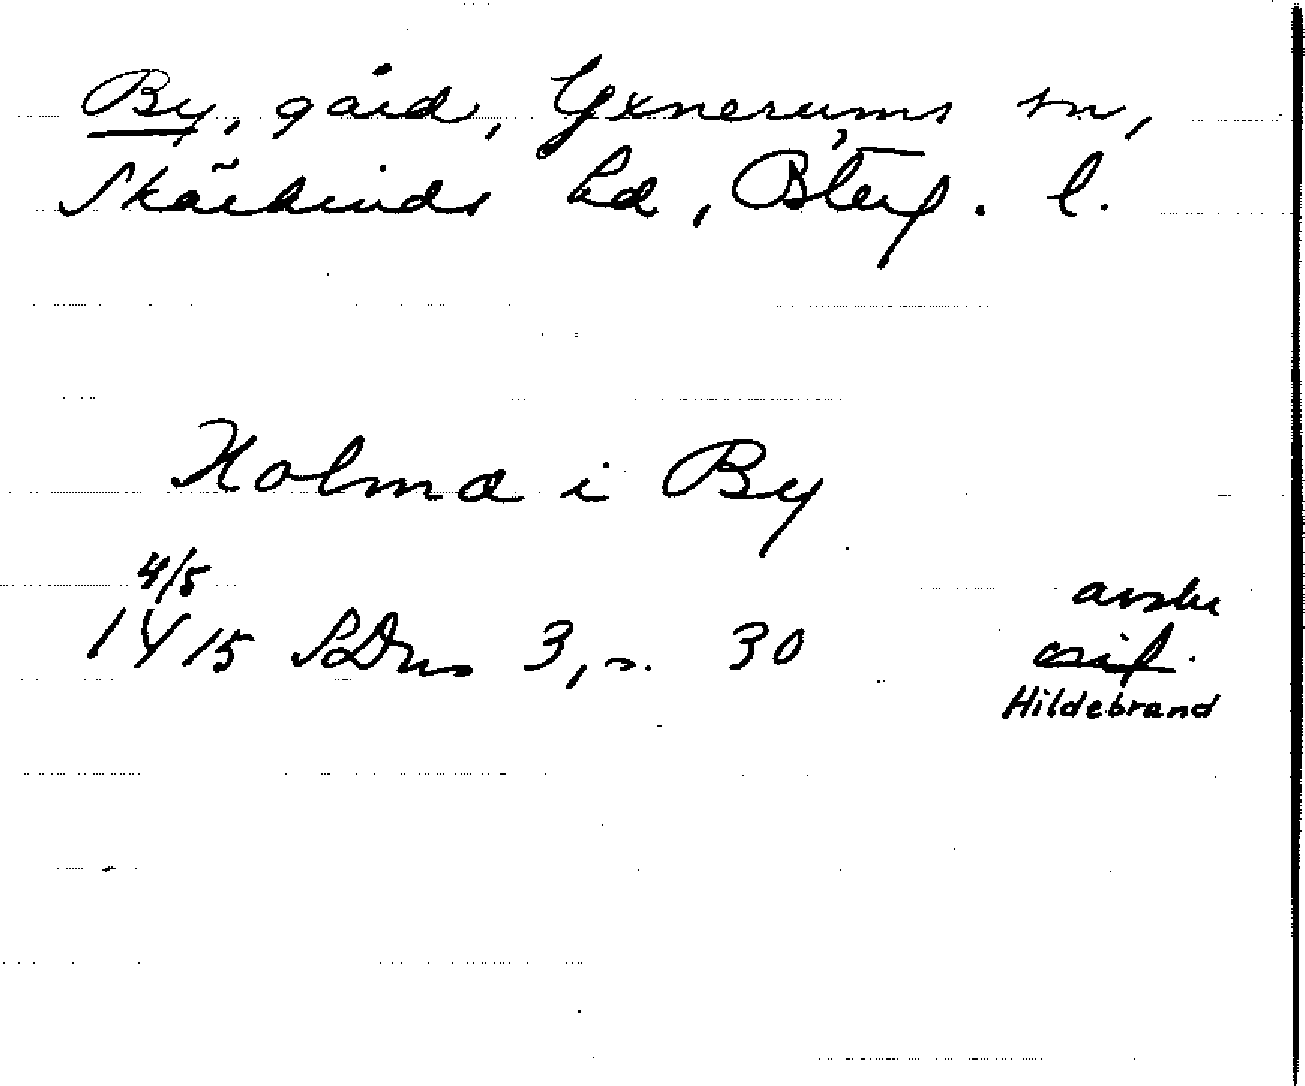 By, gård, Yxnerums sn,
Skärkinds hd, Österg. l.
Holma i By
4/5
1415 SDns 3, s. 30
avskr
orig.
Hildebrand